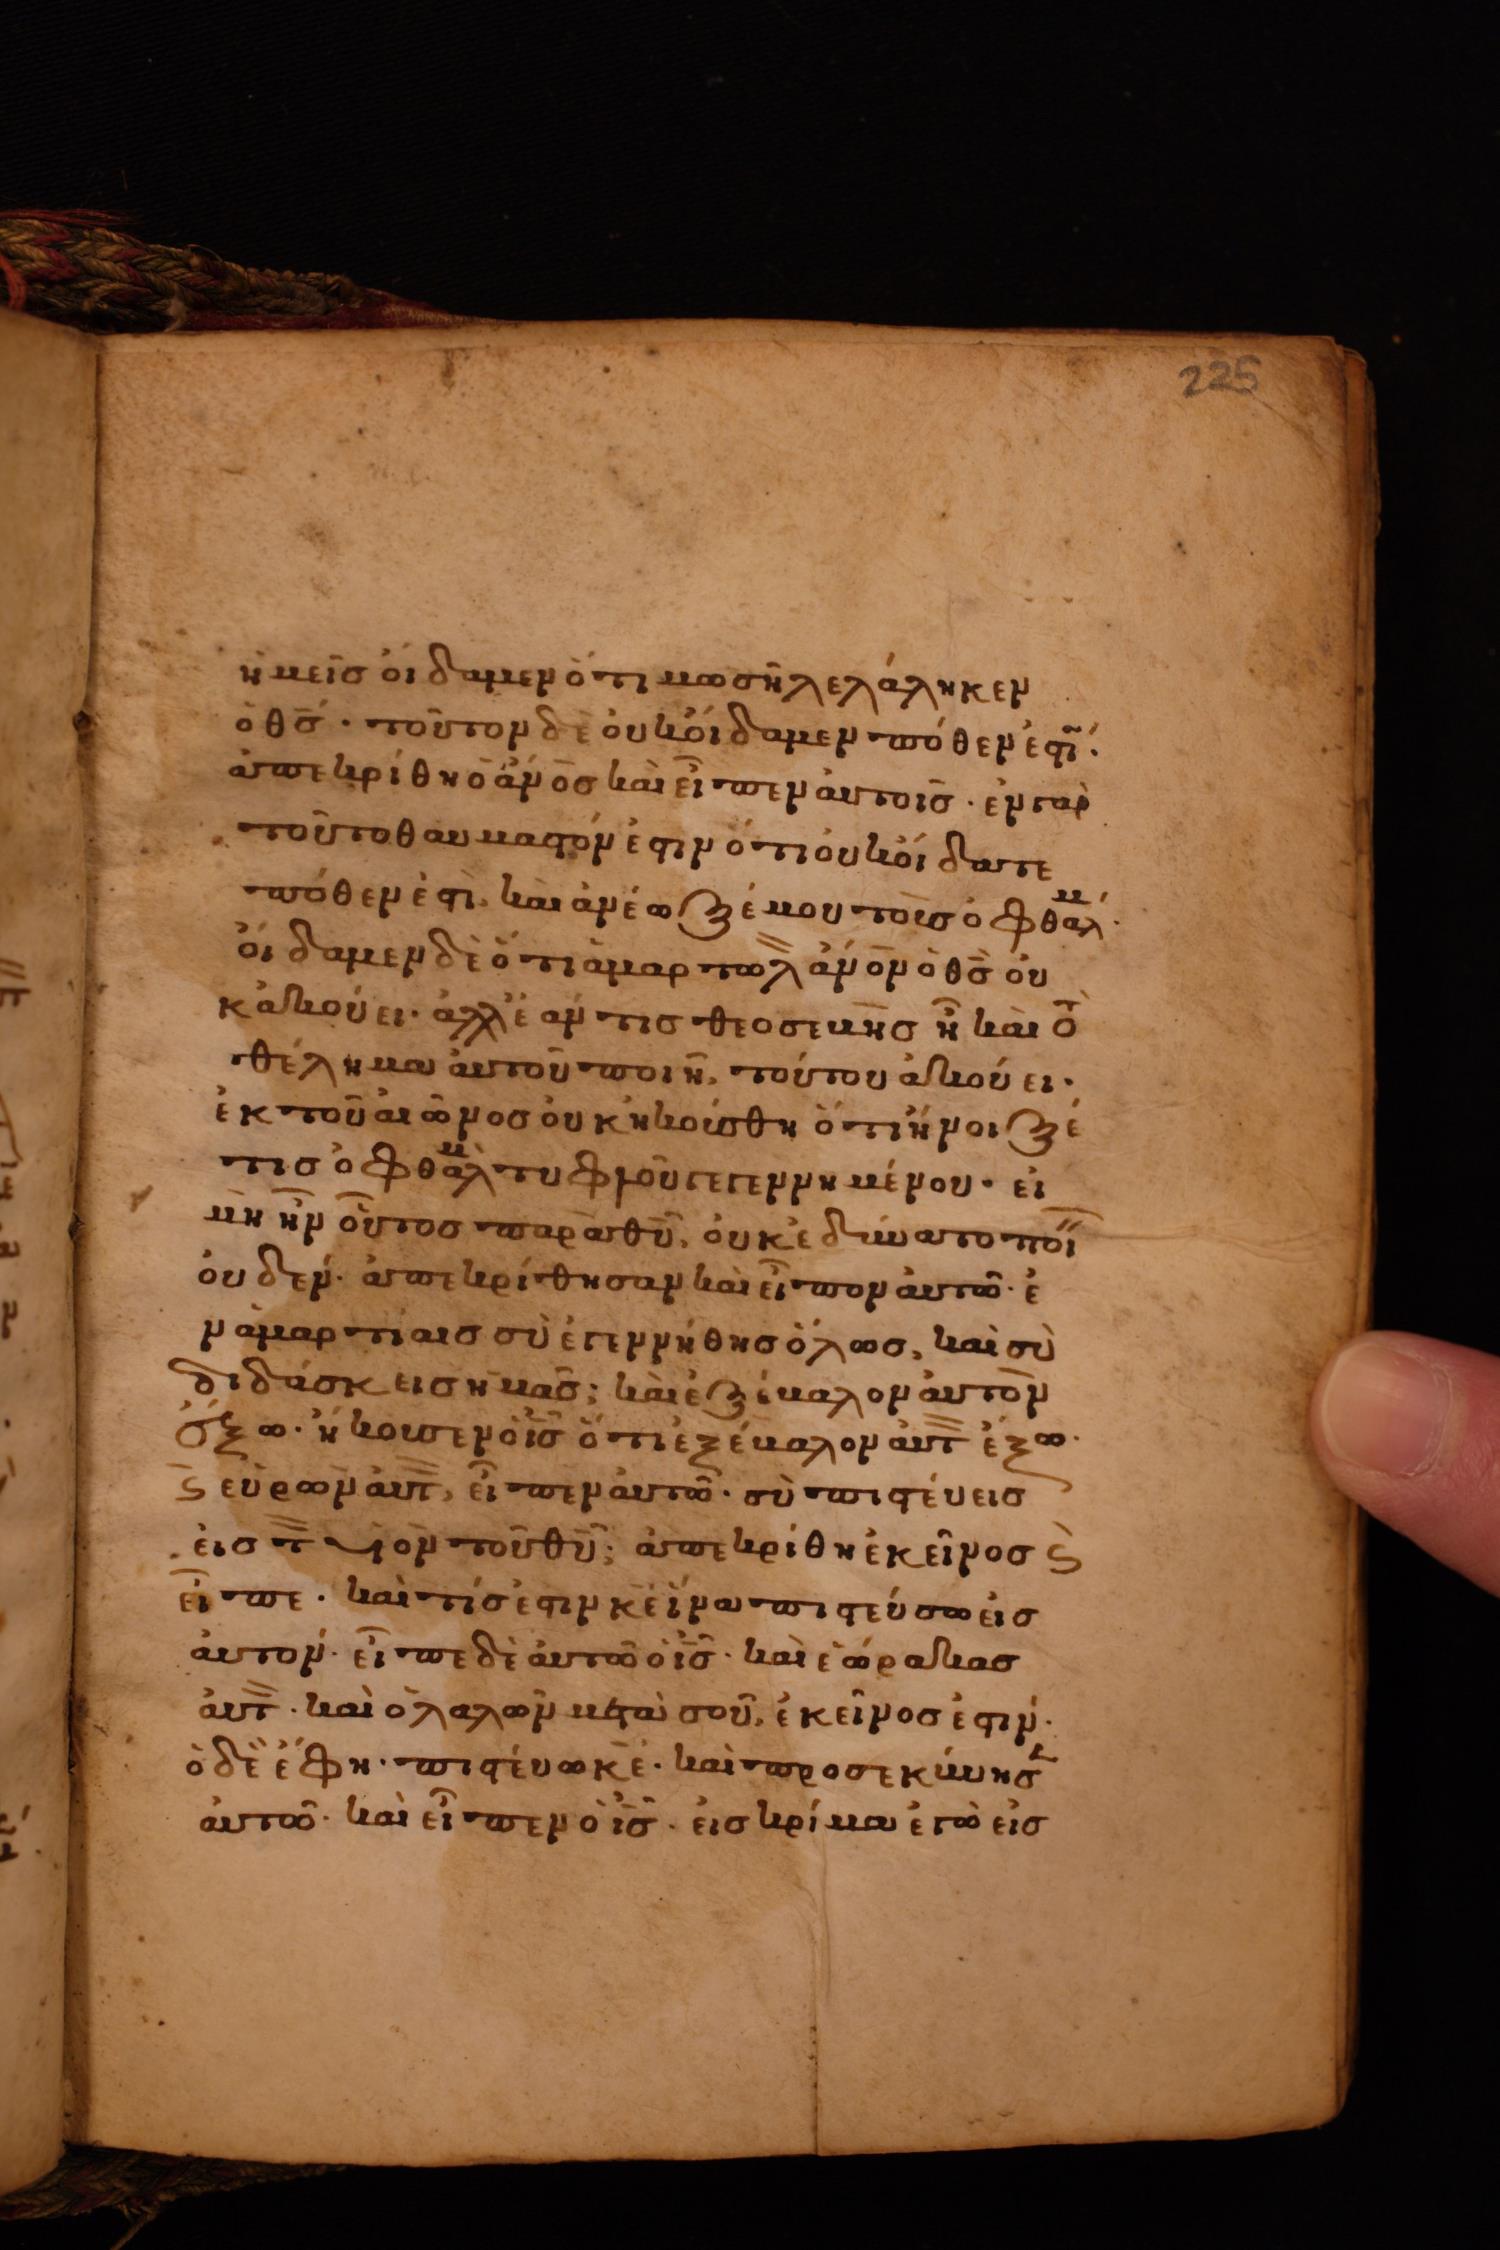 225
ἡμεῖς οἴδαμεν ὅτι μωσῆ λελάληκεν
ὁ θς̄· τοῦτον δὲ οὐκ οἴδαμεν πόθεν ἐστί·
ἀπεκρίθη ὁ ἄνος καὶ εἶπεν αὐτοῖς· ἐν γὰρ
τοῦτο θαυμαστόν ἐστιν ὅτι οὐκ οἴδατε
πόθεν ἐστὶ, καὶ ἀνέωξέ μου τοὺς ὀφθαλμ·
οἴδαμεν δὲ ὅτι ἁμαρτωλ ἄνον ὁ θς̄ οὐ
κ ἀκούει· ἀλλ' ἐάν τις θεοσεβὴς ἦ καὶ τὸ
θέλημα αὐτοῦ ποιῆ, τούτου ἀκούει·
ἐκ τοῦ αἰῶνος οὐκ ἠκούσθη ὅτι ἤνοιξέ
τις ὀφθαλμ τυφλοῦ γεγεννημένου· εἰ
μὴ ἦν οὗτος παρὰ θῦ, οὐκ ἐδύνατο ποι
οὐδέν· ἀπεκρίθησαν καὶ εἶπον αὐτῶ· ἐ
ν ἁμαρτίαις σὺ ἐγεννήθης ὅλως, καὶ σὺ
διδάσκεις ἡμᾶς; καὶ ἐξέβαλον αὐτὸν
ἔξω· ἤκουσεν ὁ ἰς̄ ὅτι ἐξέβαλον αὐτ ἔξω·
ϛ εὑρὼν αὐτ, εἶπεν αὐτῶ· σὺ πιστεύεις
εἰς τ υἱὸν τοῦ θῦ; ἀπεκρίθη ἐκεῖνος ϛ
εἶπε· καὶ τίς ἐστιν κε ἵνα πιστεύσω εἰς
αὐτόν· εἶπε δὲ αὐτῶ ὁ ἰς̄· καὶ ἑώρακας
αὐτ· καὶ ὁ λαλῶν μετὰ σοῦ, ἐκεῖνος ἐστιν·
ὁ δὲ ἔφη· πιστεύω κε· καὶ προσεκύνησ
αὐτῶ· καὶ εἶπεν ὁ ἰς̄· εἰς κρίμα ἐγὼ εἰς